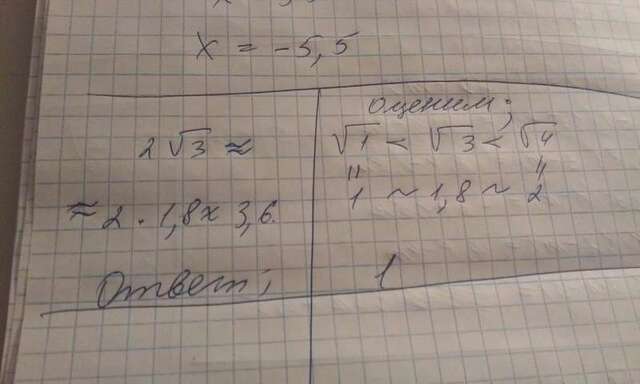 x = -5,5
2√3 ≈
≈ 2 · 1,8 ≈ 3,6.
Ответ:
оценим:
√1 < √3 < √4
" "
1 ~ 1,8 ~ 2
1